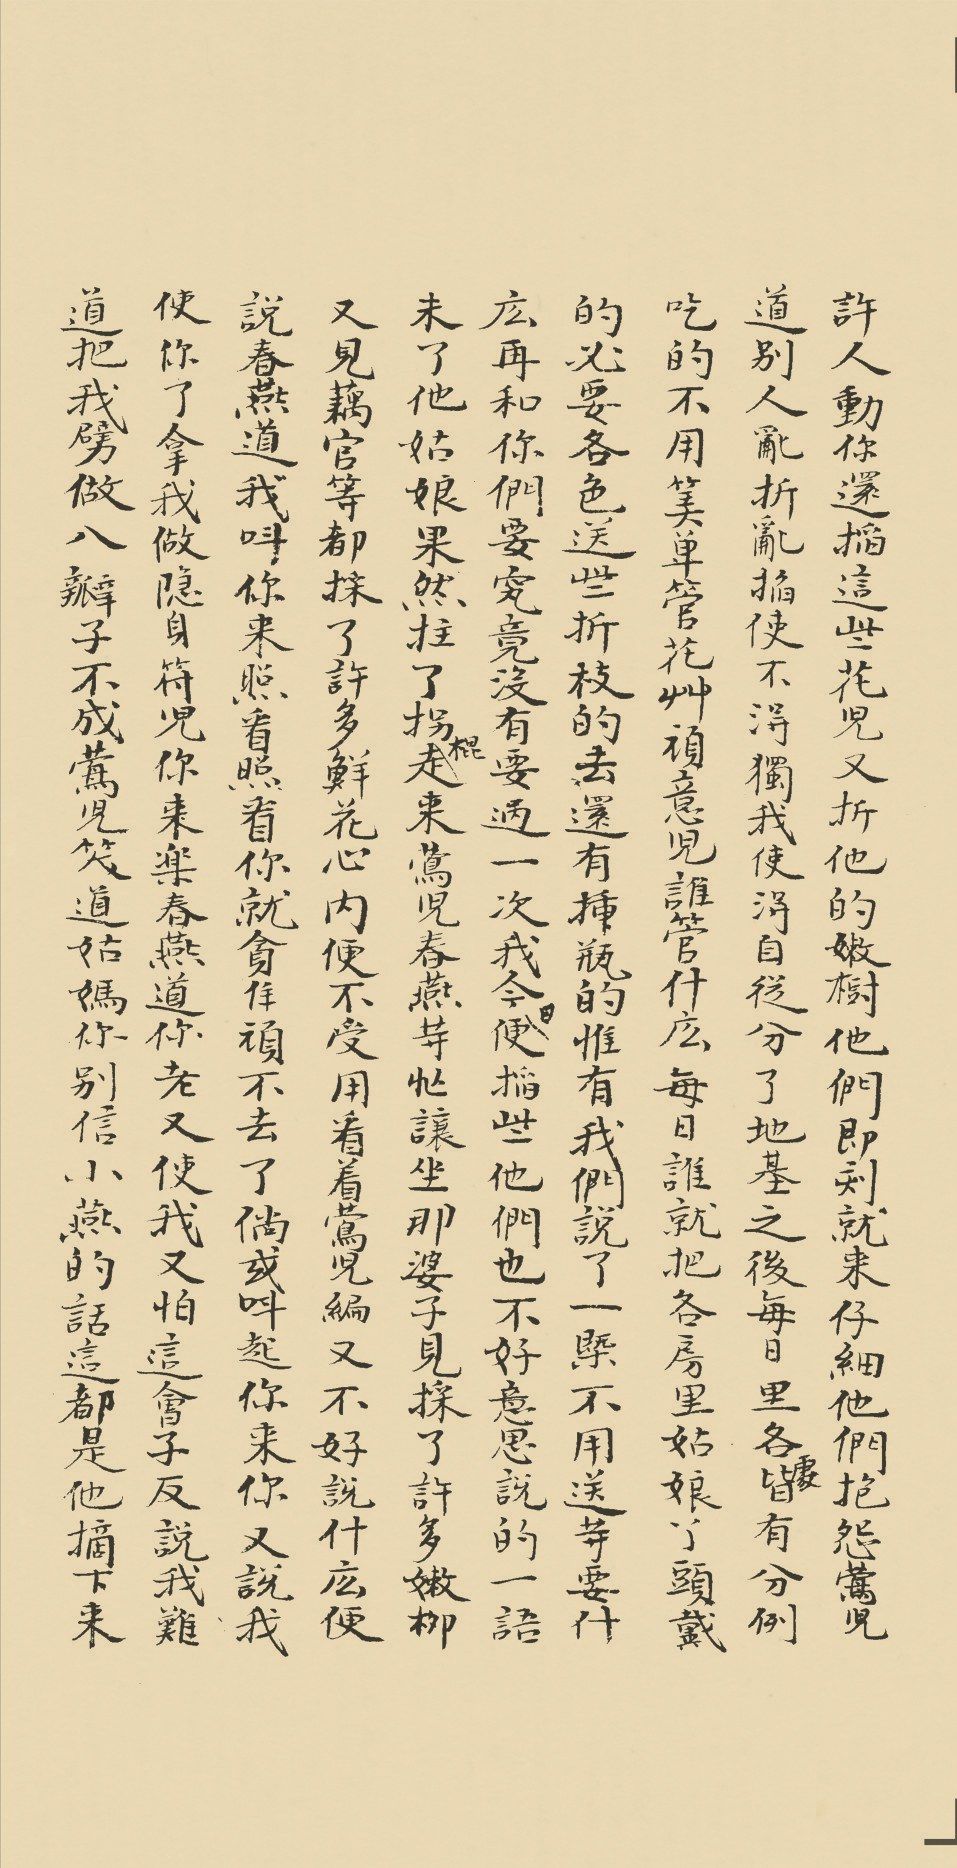 許人動你還掐這些花兒又折他的嫩樹他們即刻就来仔細他們抱怨鶯児
道别人亂折亂掐使不淂獨我使淂自從分了地基之後每日里各處皆有分例
吃的不用筭单管花艸頑意児誰管什庅每日誰就把各房里姑娘丫頭戴
的必要各色送些折枝的去還有揷瓶的惟有我們説了一槩不用送䓁要什
庅再和你們要究竟没有要過一次我今日便掐些他們也不好意思説的一語
未了他姑娘果然拄了拐棍走来鶯児春燕䓁忙讓坐那婆子見採了許多嫩柳
又見藕官等都採了許多鮮花心内便不受用看着鶯児編又不好説什庅便
説春燕道我呌你来照看照看你就貪住頑不去了倘或呌起你来你又説我
使你了拿我做隐身符児你来楽春燕道你老又使我又怕這會子反説我難
道把我劈做八瓣子不成鶯児笑道姑媽你别信小燕的話這都是他摘下来